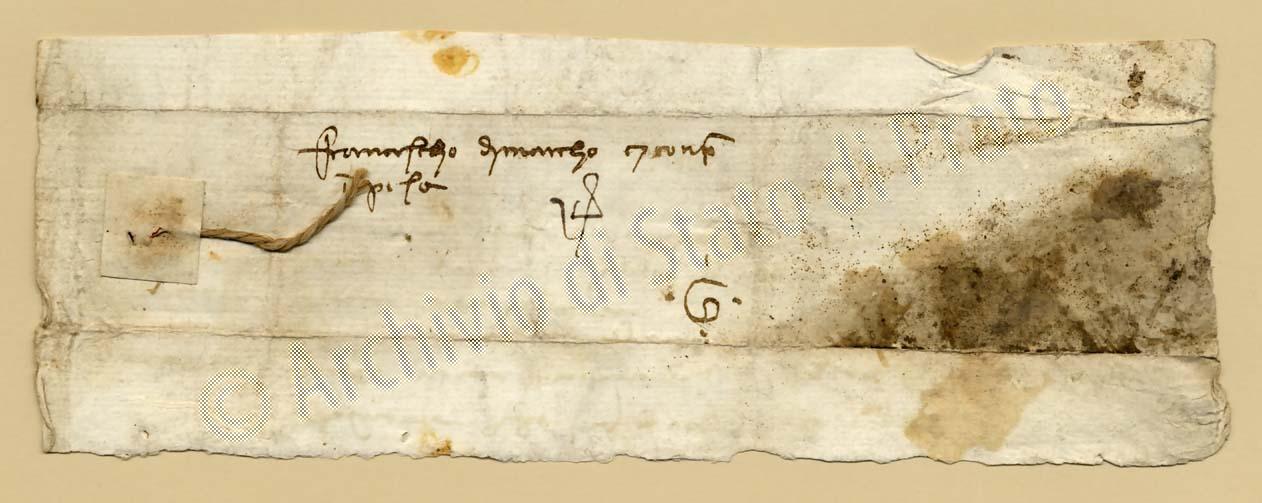 Francischo dimarcho e conp
in pisa
G
© Archivio di Stato di Prato